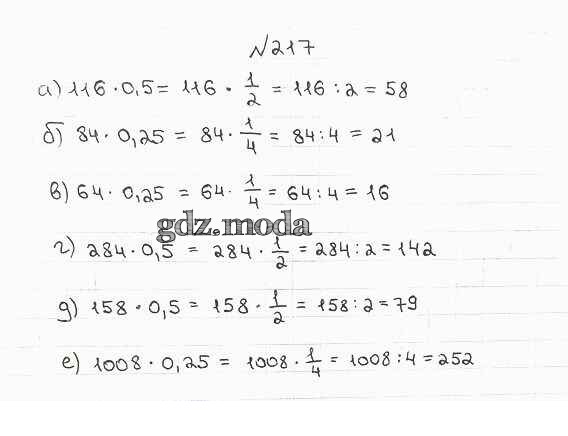 №217
а) 116 · 0,5 = 116 · 1/2 = 116 : 2 = 58
б) 84 · 0,25 = 84 · 1/4 = 84 : 4 = 21
в) 64 · 0,25 = 64 · 1/4 = 64 : 4 = 16
gdz.moda
г) 284 · 0,5 = 284 · 1/2 = 284 : 2 = 142
д) 158 · 0,5 = 158 · 1/2 = 158 : 2 = 79
е) 1008 · 0,25 = 1008 · 1/4 = 1008 : 4 = 252